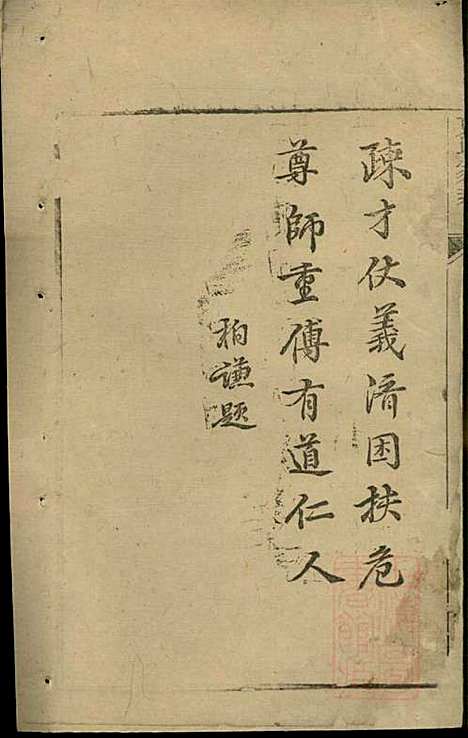 疎才仗義濟困扶危
尊師重傅有道仁人
柏謙題